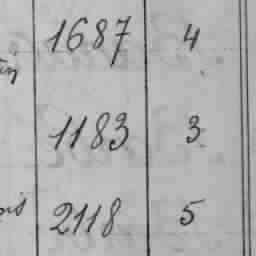 1687 4
1183 3
2118 5